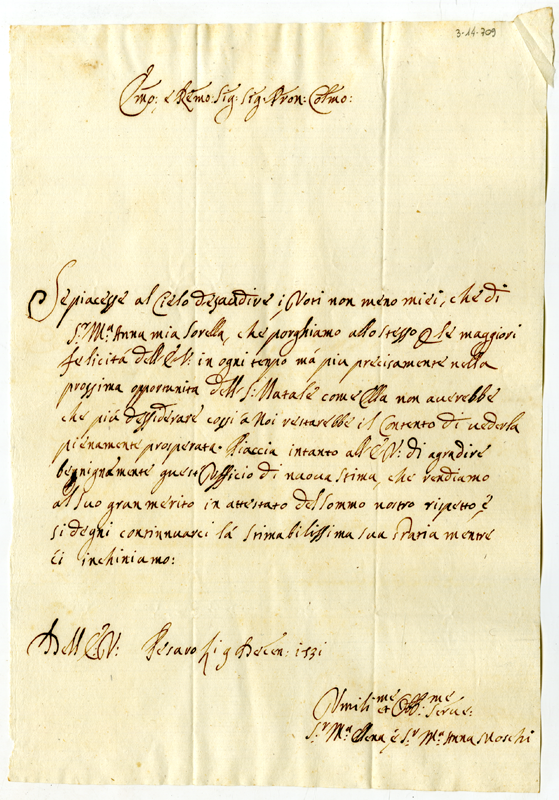 3-14-709
Imo: e Remo: Sig: Sig: Pron: Colmo:
Se piacesse al Cielo desaudire i Voti non meno miei, che di
Sr. Ma. Anna mia sorella, che porghiamo allo stesso p le maggiori
felicità dell'E: V: in ogni tenpo ma piu precisamente nella
prossima opportunita dell S: Natale come Ella non averebbe
che più dessiderare cossi à Noi restarebbe il Contento di vederla
pienamente prosperata. Piaccia intanto all'E: V: di agradire
begnignamente questo Ufficio di nuova stima, che rendiamo
al suo gran merito in attestato del sommo nostro rispetto, è
si degni continnuarci là stimabilissima sua Gratia mentre
ci inchiniamo:
Dell'E: V: Pesaro li 9 Decen: 1731
Umilime et Obbme Serve:
Sr. Ma. Elena è Sr. Ma. Anna Moschi